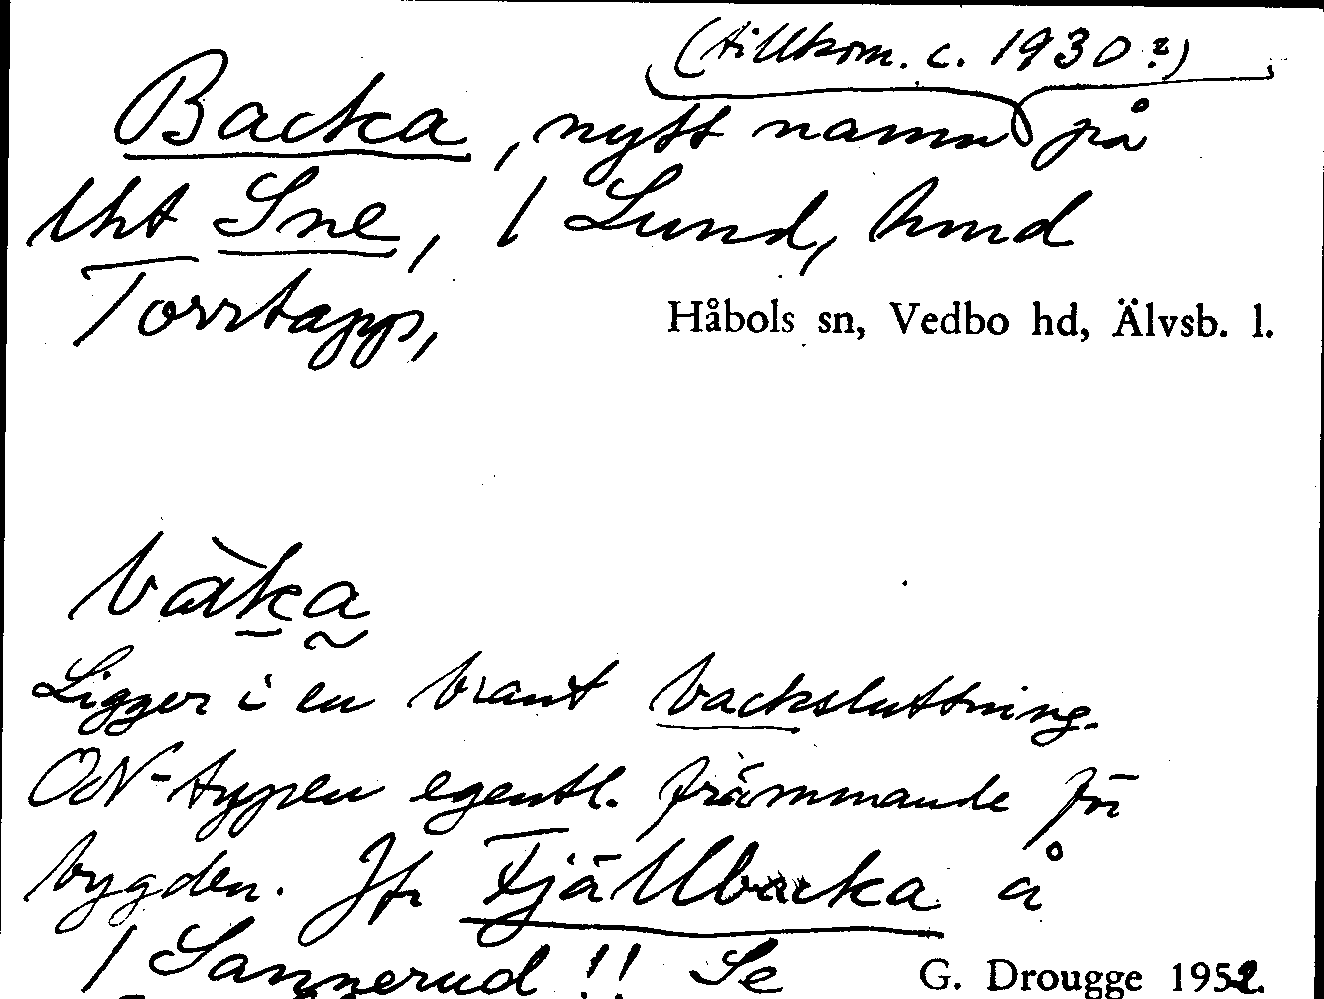 (tillkom. c. 1930?)
Backa, nytt namn på
lht Sne, / Lund, hmd
Torrtapp,
Håbols sn, Vedbo hd, Älvsb. l.
bàka
Ligger i en brant backsluttning.
ON-typen egentl. främmande för
bygden. Jfr Fjällbacka å
/ Sannerud !! Se
G. Drougge 1952.